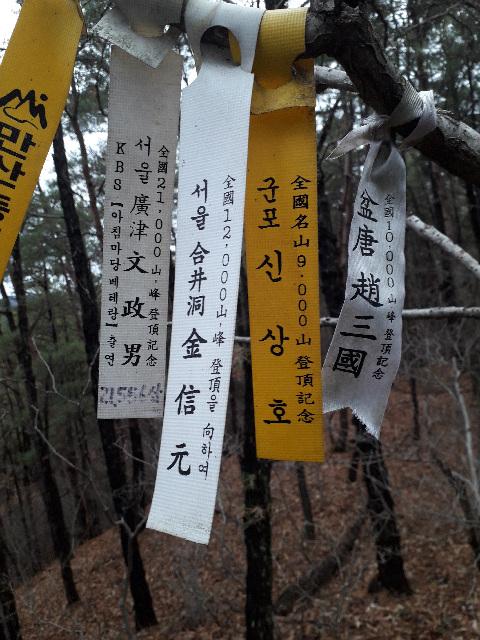 만산
全國21,000山,峰 登頂記念
서울 廣津 文政男
KBS【아침마당베테랑】출연
全國12,000山,峰 登頂을 向하여
서울 合井洞 金信元
全國名山9.000山登頂記念
군포 신상호
全國10.000山,峰 登頂記念
盆唐 趙三國